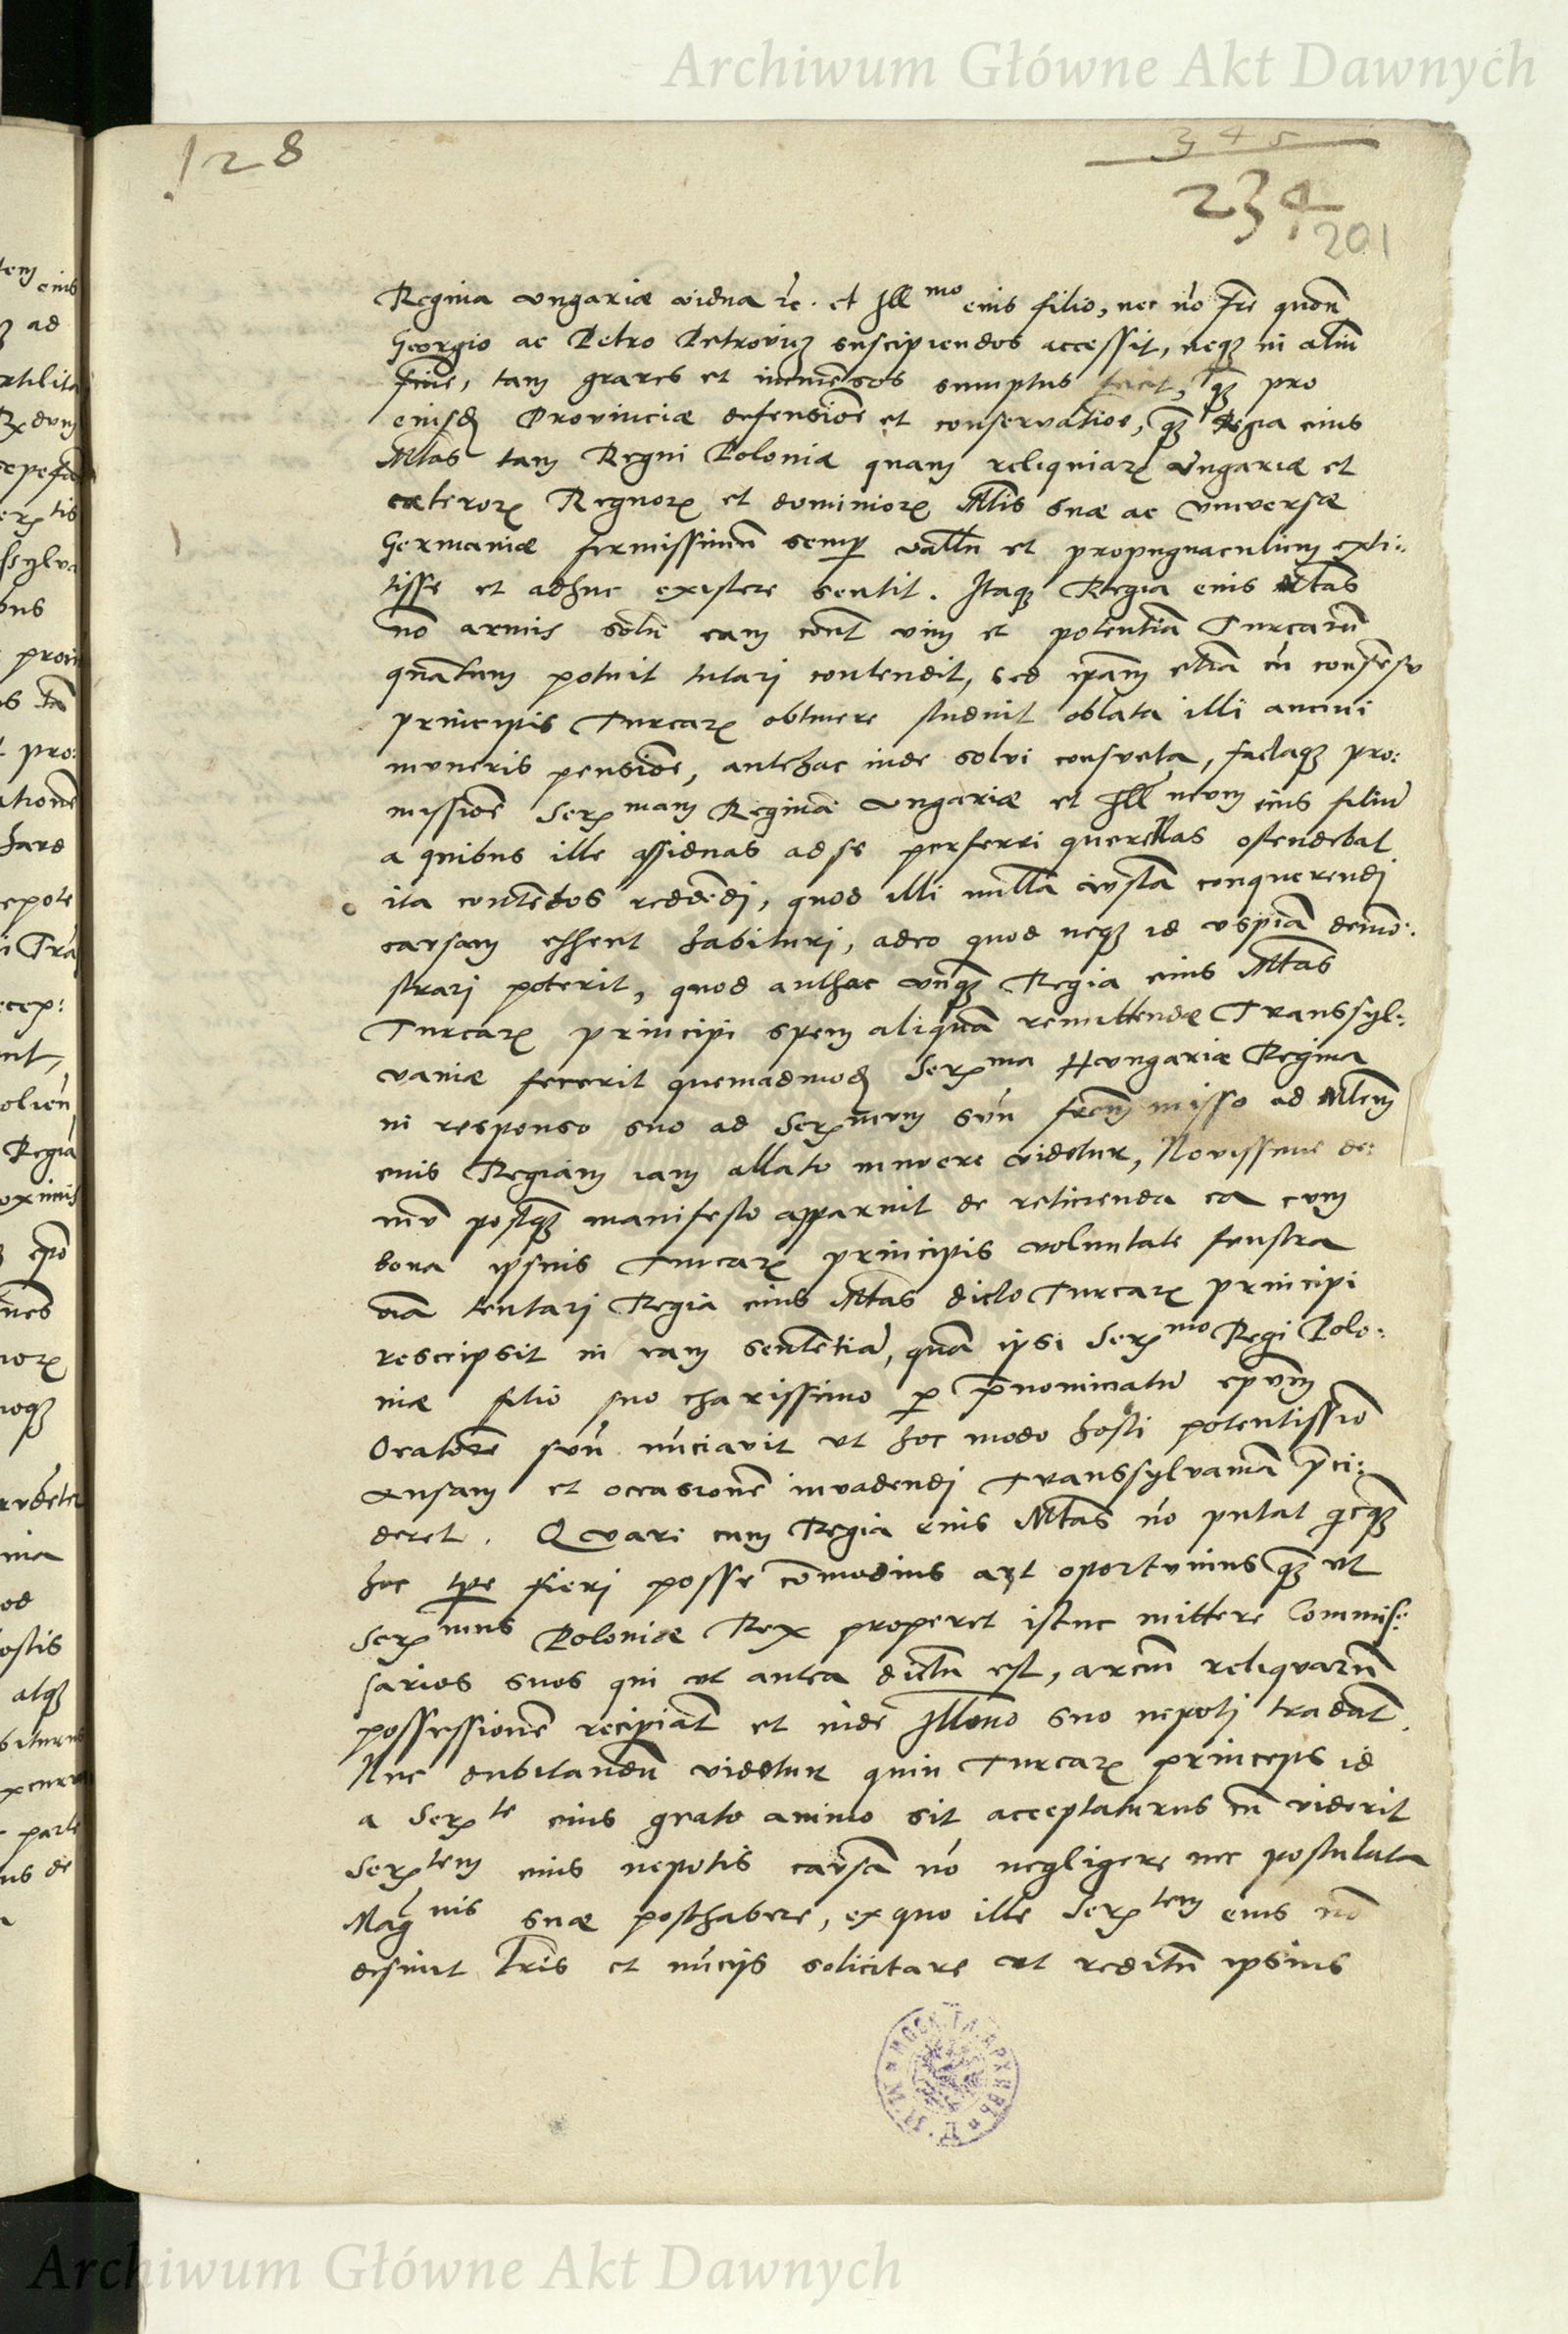 Archiwum Główne Akt Dawnych
128
345
234
201
Regina Ungariæ vidua rc. et Ill mo eius filio, nec nō Fre quon̄
Georgio ac Petro Petrovicz suscipiendos accessit, neqꝫ in aliū
finē, tam graves et inmēsos sumptus fecit, qꝫ pro
eiusd Provinciæ defensiōe et conservatioē, qꝫ Regia eius
Mtas tam Regni Poloniæ quam reliquiarꝝ Ungariæ et
cæterorꝝ Regnorꝝ et dominiorꝝ Mtis suæ ac Universæ
Germaniæ firmissimū semp vallū et propugnaculum exti:
tisse et adhuc existere sentit. Itaqꝫ Regia eius Mtas
nō armis solū eam cont vim et potentiā Turcarū
quātum potuit tutari contendit, sed ipam etiā cū consēsu
principis Turcarꝝ obtinere studuit oblata illi annui
muneris pensiōe, antehac inde solvi consueta, factaqꝫ pro:
missiōe Serꝝ mam Reginā Ungariæ et Ill mum eius filiū
a quibus ille assiduas ad se perferri querellas ostendebat
ita contētos reddēdi, quod illi nullā iustā conquerendj
causam essent habituri, adeo quod neqꝫ id uspiā demō:
strari poterit, quod anthac unqꝫ Regia eius Mtas
Turcarꝝ principi spem aliquā remittendæ Transsyl:
vaniæ fecerit quemadmod Serꝝ ma Hungariæ Regina
in responso suo ad Serꝝ mum suū frem misso ad Mtem
eius Regiam iam allato innuere videtur, Novissime de:
mū postqꝫ manifesto apparuit de retinenda ea cum
bona ipsius Turcarꝝ principis voluntate frustra
viā tentari Regia eius Mtas dicto Turcarꝝ principi
rescripsit in eam sententiā, quā ipsi Serꝝ mo Regi Polo:
niæ filio suo charissimo p prænominatū epum
Oratorē suū nūciavit ut hoc modo hosti potentissīo
ansam et occasionē invadendj Transsylvaniā p̄ci:
deret. Quare cum Regia eius Mtas nō putat qicqꝫ
hoc tpe fieri posse cōmodius aut oportunius qꝫ ut
Serꝝ mus Poloniæ Rex properet istuc mittere Commis:
sarios suos qui ut antea dictū est, arciū reliquarū
possessionē recipiāt et indē Illmo suo nepoti tradāt.
Nec dubitandū videtur quin Turcarꝝ princeps id
a Serꝝ te eius grato animo sit accepturus cū viderit
Serꝝ tem eius nepotis causā nō negligere nec postulata
Mag nis suæ posthabere, ex quo ille Serꝝ tem eius nō
desinit Lris et nūcijs solicitare ut reditū ipsius
Archiwum Główne Akt Dawnych